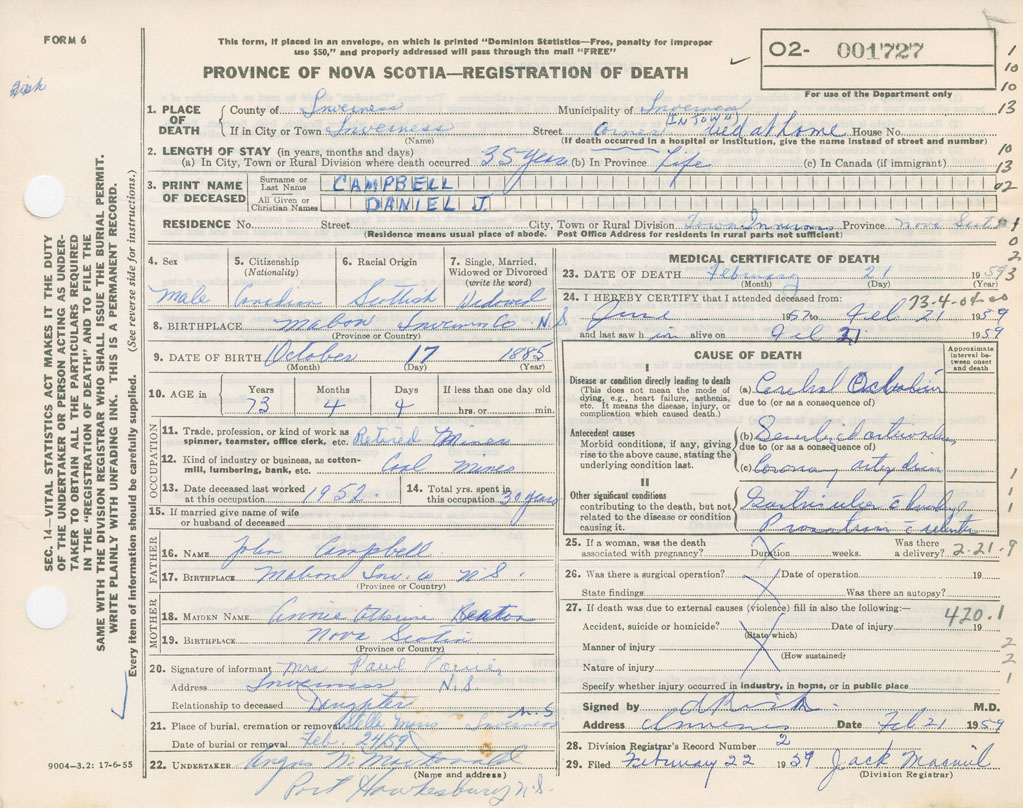 FORM 6
This form, if placed in an envelope, on which is printed "Dominion Statistics—Free, penalty for improper
use $50," and properly addressed will pass through the mail "FREE"
PROVINCE OF NOVA SCOTIA—REGISTRATION OF DEATH
O2- 001727
For use of the Department only
1
10
10
13
10
13
02
4
0
2
3
SEC. 14—VITAL STATISTICS ACT MAKES IT THE DUTY
OF THE UNDERTAKER OR PERSON ACTING AS UNDER-
TAKER TO OBTAIN ALL THE PARTICULARS REQUIRED
IN THE "REGISTRATION OF DEATH" AND TO FILE THE
SAME WITH THE DIVISION REGISTRAR WHO SHALL ISSUE THE BURIAL PERMIT.
WRITE PLAINLY WITH UNFADING INK. THIS IS A PERMANENT RECORD.
Every item of information should be carefully supplied. (See reverse side for instructions.)
1. PLACE OF DEATH
County of Inverness Municipality of Inverness
(IN TOWN)
If in City or Town Inverness Street died at home House No.
(Name) (If death occurred in a hospital or institution, give the name instead of street and number)
2. LENGTH OF STAY (in years, months and days)
(a) In City, Town or Rural Division where death occurred 35 years (b) In Province Life (c) In Canada (if immigrant)
3. PRINT NAME OF DECEASED
Surname or Last Name CAMPBELL
All Given or Christian Names DANIEL J.
RESIDENCE No. Street City, Town or Rural Division Town Inverness Province Nova Scotia
(Residence means usual place of abode. Post Office Address for residents in rural parts not sufficient)
4. Sex Male
5. Citizenship (Nationality) Canadian
6. Racial Origin Scottish
7. Single, Married, Widowed or Divorced (write the word) Widowed
8. BIRTHPLACE Mabou Inverness Co N.S.
(Province or Country)
9. DATE OF BIRTH October 17 1885
(Month) (Day) (Year)
10. AGE in Years 73 Months 4 Days 4 If less than one day old hrs. or min.
OCCUPATION
11. Trade, profession, or kind of work as spinner, teamster, office clerk, etc. Retired Miner
12. Kind of industry or business, as cotton-mill, lumbering, bank, etc. Coal Mines
13. Date deceased last worked at this occupation 1952.
14. Total yrs. spent in this occupation 30 years
15. If married give name of wife or husband of deceased
FATHER
16. NAME John Campbell
17. BIRTHPLACE Mabou Inv. Co N.S.
(Province or Country)
MOTHER
18. MAIDEN NAME Annie Catherine Beaton
19. BIRTHPLACE Nova Scotia
(Province or Country)
20. Signature of informant Mrs Paul
Address Inverness N.S.
Relationship to deceased Daughter
21. Place of burial, cremation or removal Inverness N.S
Date of burial or removal Feb. 24/59
22. UNDERTAKER Angus N. MacDonald
(Name and address)
Port Hawkesbury N.S.
9004—3.2: 17-6-55
MEDICAL CERTIFICATE OF DEATH
23. DATE OF DEATH February 21 1959
(Month) (Day) (Year)
73-4-04-00
24. I HEREBY CERTIFY that I attended deceased from:
June 1957 to Feb 21 1959
and last saw him alive on Feb 21 1959
CAUSE OF DEATH
Approximate interval between onset and death
I
Disease or condition directly leading to death
(This does not mean the mode of dying, e.g., heart failure, asthenia, etc. It means the disease, injury, or complication which caused death.)
(a) Cerebral
due to (or as a consequence of)
Antecedent causes
Morbid conditions, if any, giving rise to the above cause, stating the underlying condition last.
(b)
due to (or as a consequence of)
(c) Coronary artery
II
Other significant conditions contributing to the death, but not related to the disease or condition causing it.
1
1
1
25. If a woman, was the death associated with pregnancy? Duration weeks. Was there a delivery? 2-21-9
26. Was there a surgical operation? Date of operation 19
State findings Was there an autopsy?
27. If death was due to external causes (violence) fill in also the following:—
420.1
Accident, suicide or homicide? Date of injury 19
(State which)
Manner of injury 2
(How sustained)
Nature of injury 2
Specify whether injury occurred in industry, in home, or in public place 1
Signed by M.D.
Address Inverness Date Feb 21 1959
28. Division Registrar's Record Number 2
29. Filed February 22 1959 Jack
(Division Registrar)